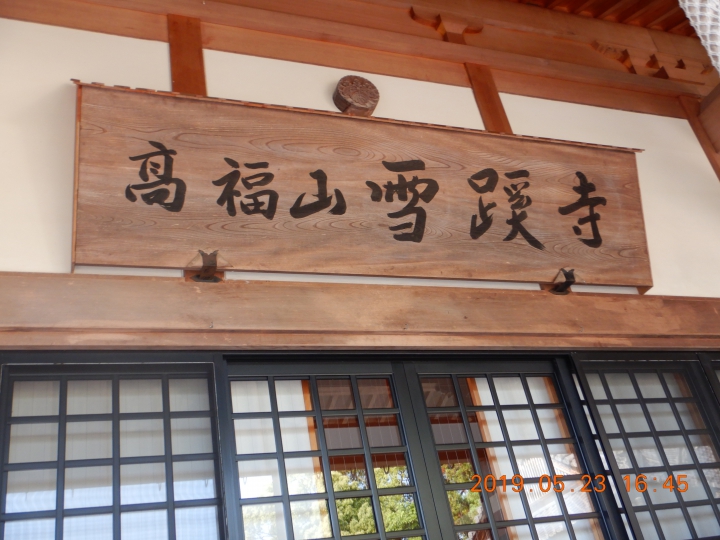 高福山雪蹊寺
2019.05.23 16:45